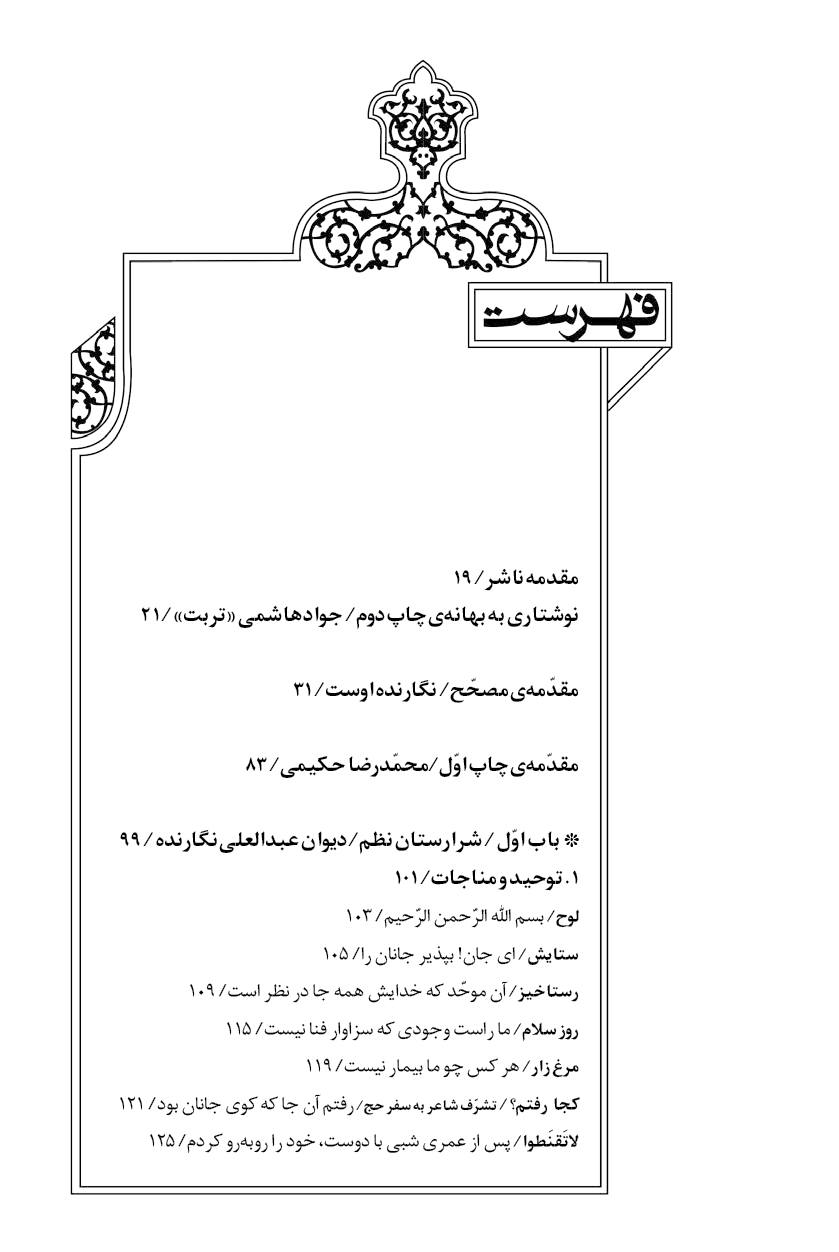 فهرست
مقدمه ناشر/ ۱۹
نوشتاری به بهانه‌ی چاپ دوم/ جواد هاشمی «تربت»/ ۲۱
مقدّمه‌ی مصحّح/ نگارنده اوست/ ۳۱
مقدّمه‌ی چاپ اوّل/محمّدرضا حکیمی/ ۸۳
❊ باب اوّل/ شرارستان نظم/ دیوان عبدالعلی نگارنده/ ۹۹
۱. توحید و مناجات/ ۱۰۱
لوح/ بسم الله الرّحمن الرّحیم/ ۱۰۳
ستایش/ ای جان! بپذیر جانان را/ ۱۰۵
رستاخیز/ آن موحّد که خدایش همه جا در نظر است/ ۱۰۹
روز سلام/ ما راست وجودی که سزاوار فنا نیست/ ۱۱۵
مرغ زار/ هر کس چو ما بیمار نیست/ ۱۱۹
کجا رفتم؟/ تشرّف شاعر به سفر حج/ رفتم آن جا که کوی جانان بود/ ۱۲۱
لاتَقنَطوا/ پس از عمری شبی با دوست، خود را روبه‌رو کردم/ ۱۲۵